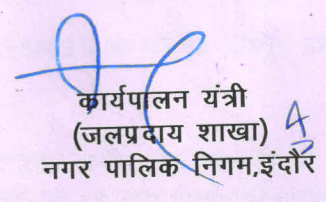 कार्यपालन यंत्री
(जलप्रदाय शाखा)
नगर पालिक निगम,इंदौर